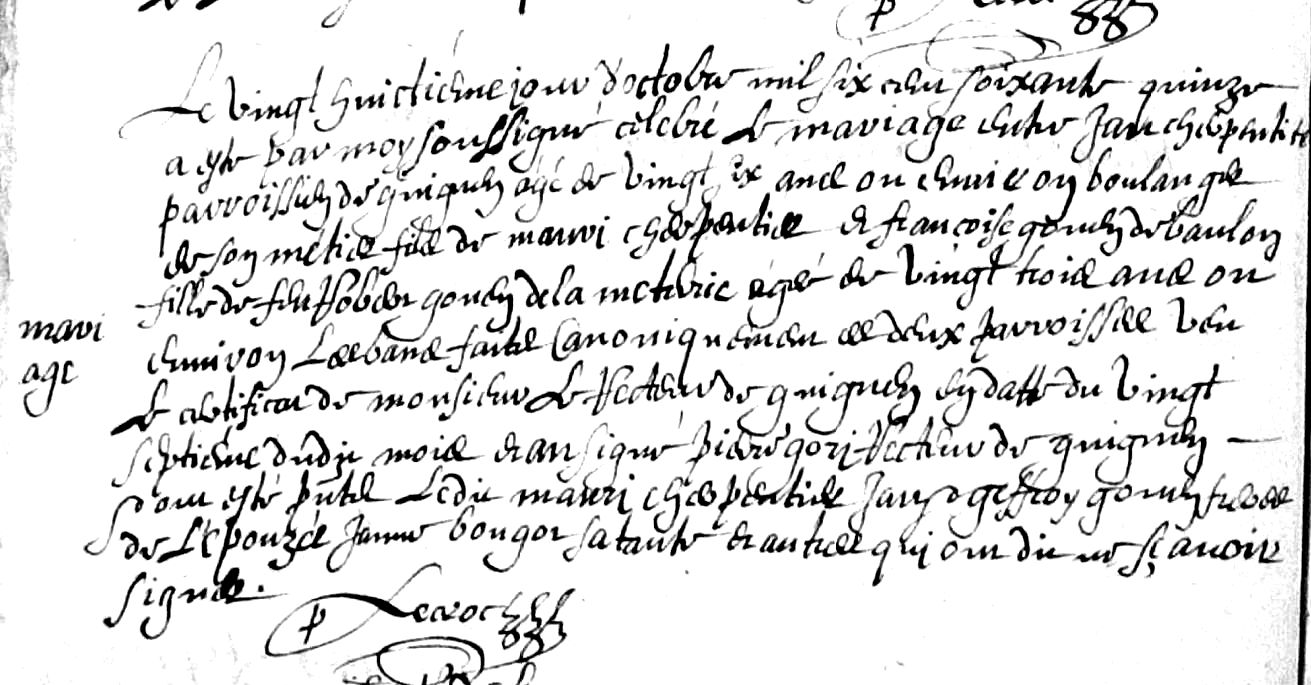 Le vingt huictiéme jour d'octobre mil six cen soixante quinze
a esté par moy soussigné célébré le mariage entre Jan cherpentier
parroissien de guignen agé de vingt six ans ou environ boulanger
de son métier fils de mauri cherpentier et francoise gouen de baulon
fille de feu Rober gouen de la meterie agée de vingt trois ans ou
mari
age
environ Les bans faits Canoniquemen es deux parroisses veu
le certificat de monsieur Le Recteur de guignen en datte du vingt
septiéme dudit mois et an signé pierre gori Recteur de guignen
S ont esté pnts Ledit mauri cherpentier Jan et geffroy gouen freres
de L'epouzée Janne bougot sa tante et autres qui ont dit ne sçavoir
signer.
p Lecroc